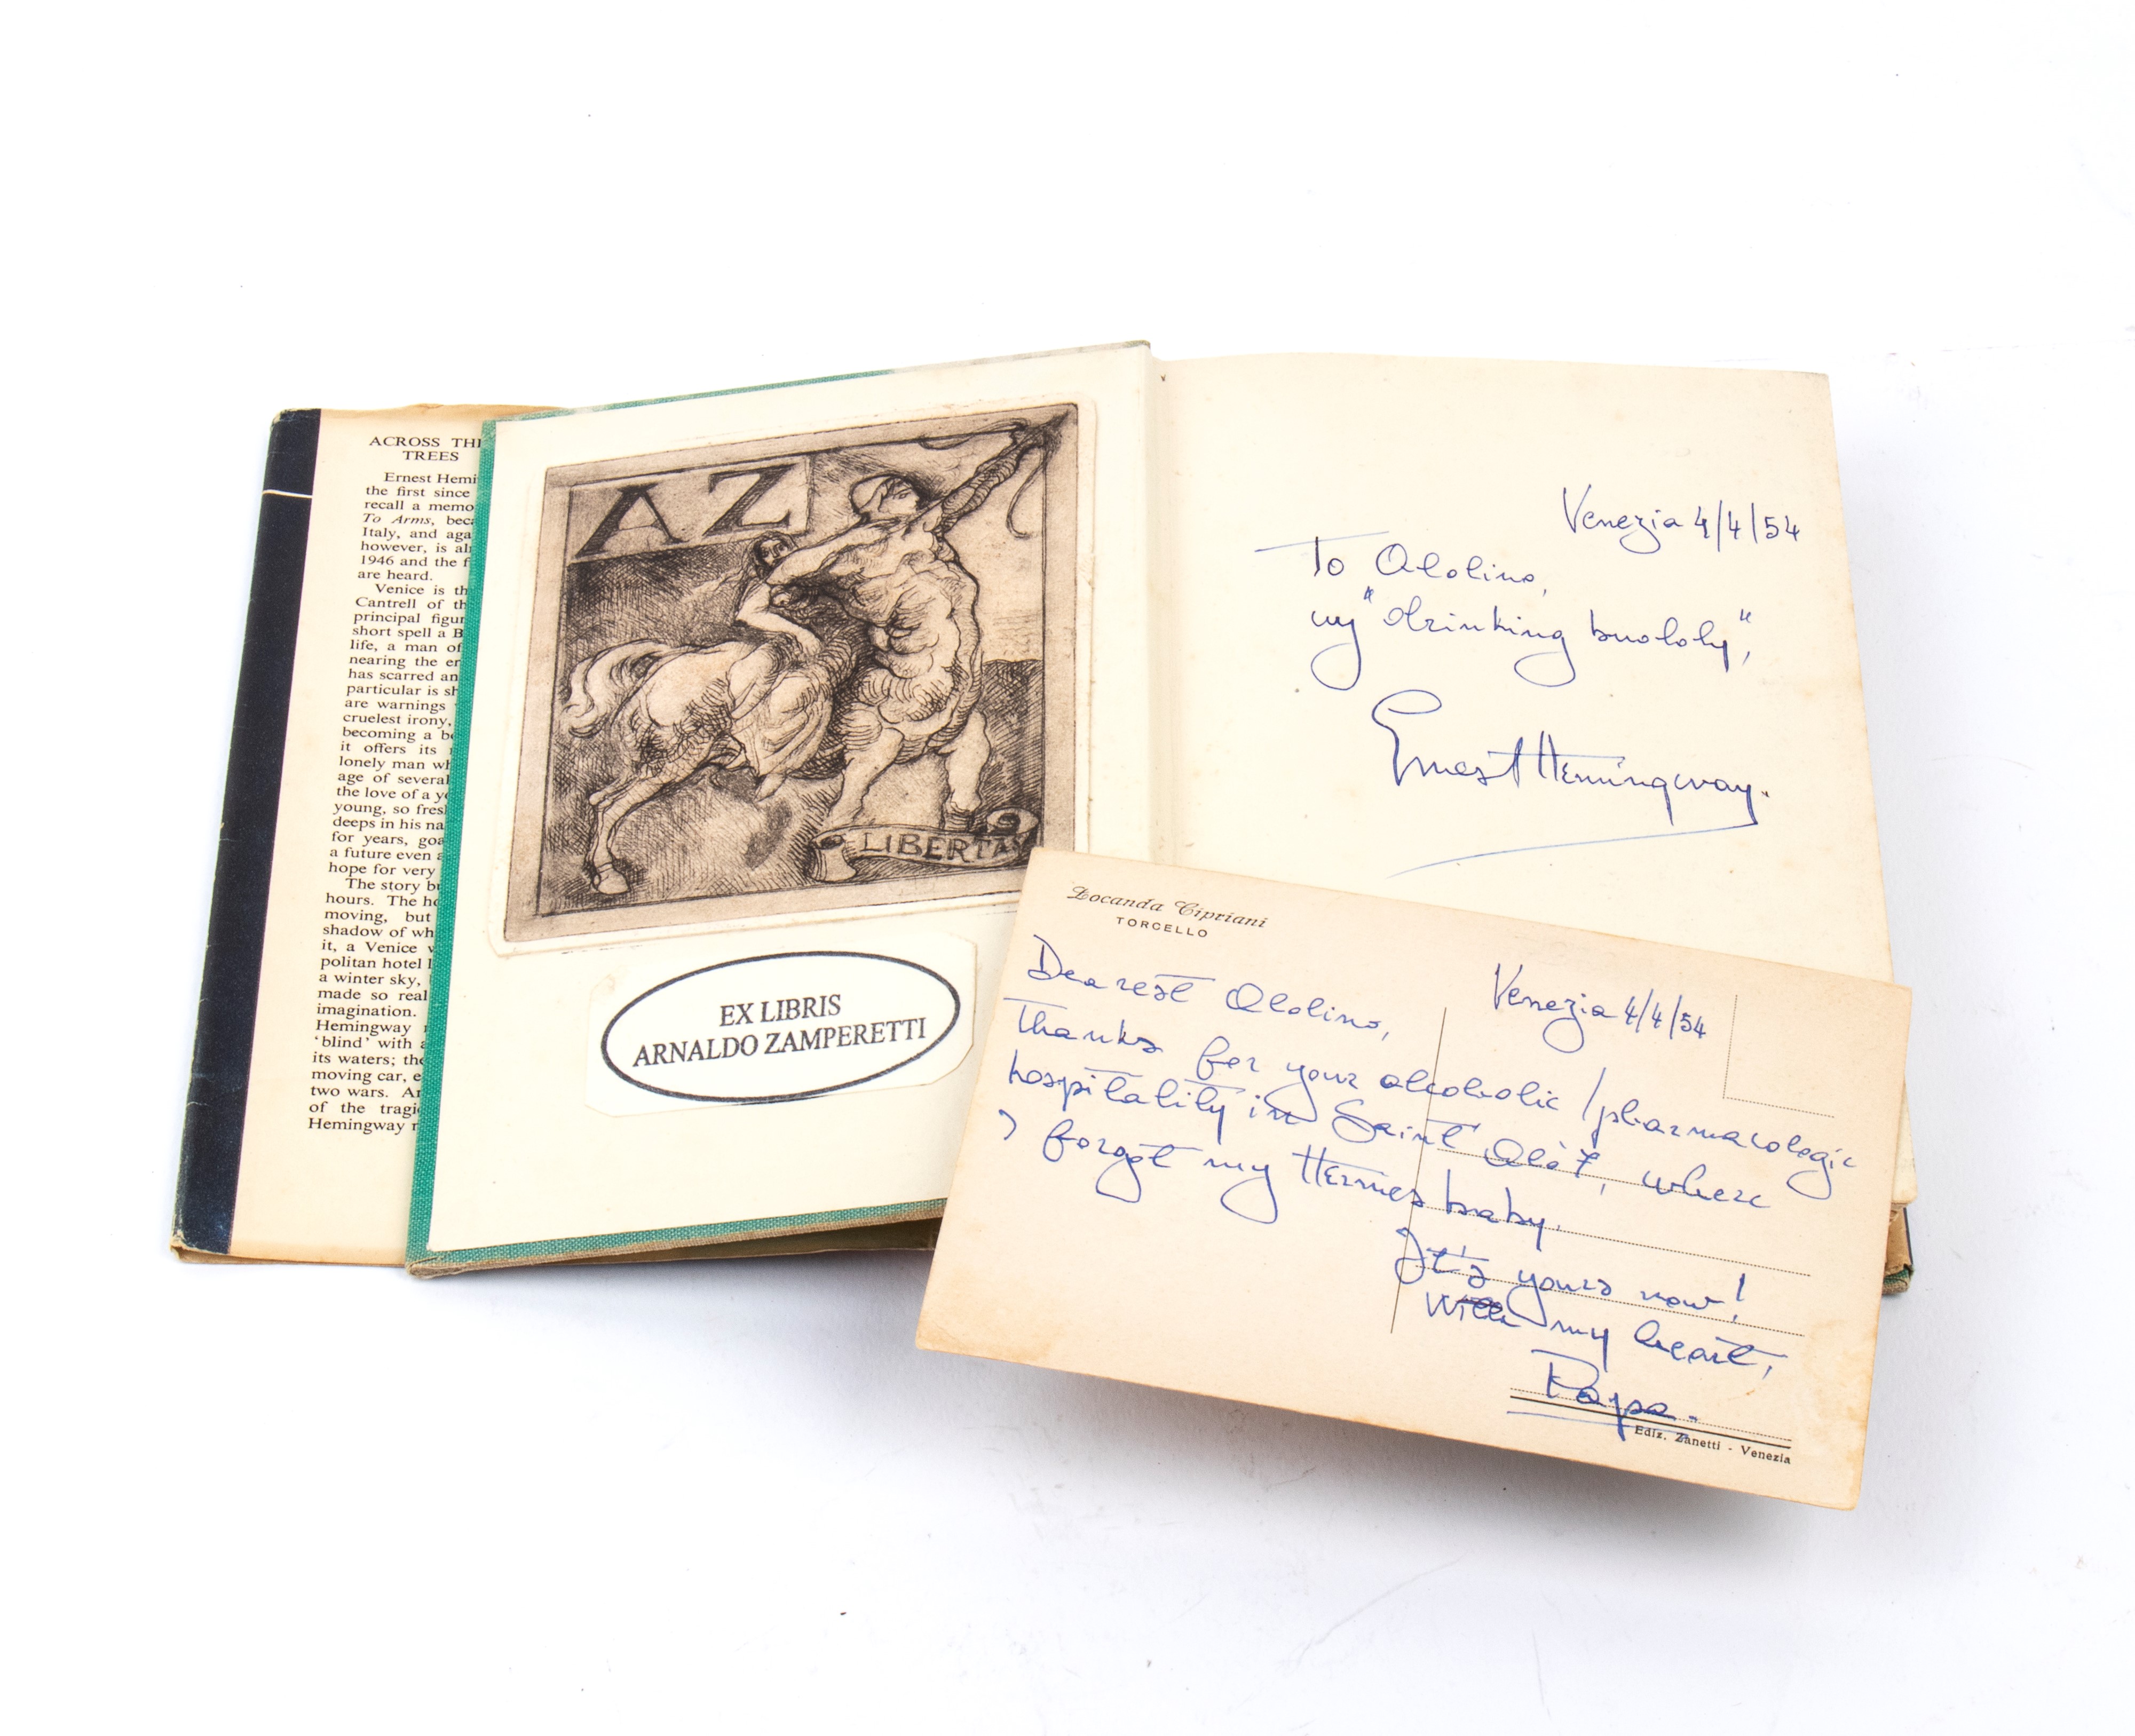 ACROSS TH
TREES
Ernest Hemi
the first since
recall a memo
To Arms, bec
Italy, and aga
however, is al
1946 and the f
are heard.
Venice is th
Cantrell of th
principal figur
short spell a B
life, a man of
nearing the en
has scarred an
particular is sh
are warnings
cruelest irony,
becoming a b
it offers its
lonely man wh
age of several
the love of a y
young, so fres
deeps in his na
for years, goa
a future even a
hope for very
The story b
hours. The ho
moving, but
shadow of wh
it, a Venice w
politan hotel l
a winter sky,
made so real
imagination.
Hemingway
'blind' with a
its waters; the
moving car, e
two wars. An
of the tragi
Hemingway
AZ
LIBERTAS
EX LIBRIS
ARNALDO ZAMPERETTI
Venezia 4/4/54
To
my "drinking buddy",
Ernest Hemingway.
Locanda Cipriani
TORCELLO
Venezia 4/4/54
Dearest
thanks for your alcoholic / pharmacologic
hospitality in Saint where
I forgot my Hermes baby.
It's yours now!
With my heart,
Papa.
Ediz. Zanetti - Venezia